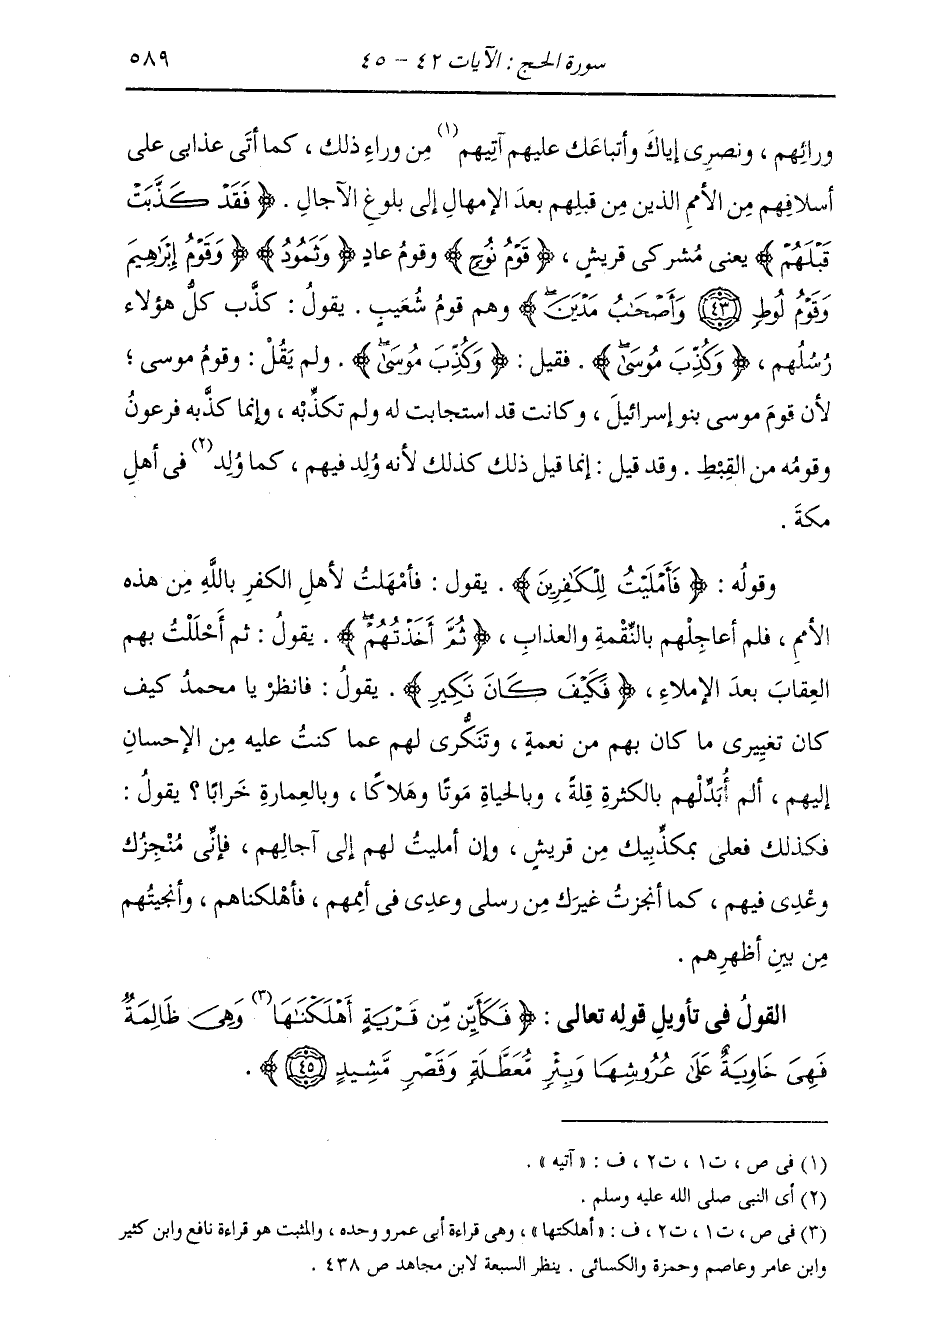 سورة الحج : الآيات ٤٢ - ٤٥ ٥٨٩
ورائِهم ، ونصرِى إياكَ وأتباعَك عليهم آتِيهم(١) مِن وراءِ ذلك ، كما أتَى عذابى على
أسلافِهم مِن الأممِ الذين مِن قبلِهم بعدَ الإمهالِ إلى بلوغِ الآجالِ . ﴿ فَقَدْ كَذَّبَتْ
قَبْلَهُمْ ﴾ يعنى مُشركى قريشٍ ، ﴿ قَوْمُ نُوحٍ ﴾ وقومُ عادٍ ﴿ وَثَمُودُ ﴾ ﴿ وَقَوْمُ إِبْرَٰهِيمَ
وَقَوْمُ لُوطٍ ﴿٤٣﴾ وَأَصْحَٰبُ مَدْيَنَۖ ﴾ وهم قومُ شُعَيبٍ . يقولُ : كذَّب كلُّ هؤلاء
رُسُلَهم ، ﴿ وَكُذِّبَ مُوسَىٰۖ ﴾ . فقيل : ﴿ وَكُذِّبَ مُوسَىٰۖ ﴾ . ولم يَقُلْ : وقومُ موسى ؛
لأن قومَ موسى بنو إسرائيلَ ، وكانت قد استجابت له ولم تكذِّبْه ، وإنما كذَّبه فرعونُ
وقومُه من القِبْطِ . وقد قيل : إنما قيل ذلك كذلك لأنه وُلِد فيهم ، كما وُلِد(٢) فى أهلِ
مكةَ .
وقولُه : ﴿ فَأَمْلَيْتُ لِلْكَٰفِرِينَ ﴾ . يقول : فأمْهلتُ لأهلِ الكفرِ باللَّهِ مِن هذه
الأممِ ، فلم أعاجِلْهم بالنِّقْمةِ والعذابِ ، ﴿ ثُمَّ أَخَذْتُهُمْۖ ﴾ . يقولُ : ثم أَحْلَلْتُ بهم
العِقابَ بعدَ الإملاءِ ، ﴿ فَكَيْفَ كَانَ نَكِيرِ ﴾ . يقولُ : فانظرْ يا محمدُ كيف
كان تغييرِى ما كان بهم من نعمةٍ ، وتَنَكُّرى لهم عما كنتُ عليه مِن الإحسانِ
إليهم ، ألم أُبَدِّلْهم بالكثرةِ قِلةً ، وبالحياةِ مَوتًا وهَلاكًا ، وبالعِمارةِ خَرابًا ؟ يقولُ :
فكذلك فعلى بمكذِّبِيك مِن قريشٍ ، وإن أمليتُ لهم إلى آجالِهم ، فإنِّى مُنْجِزُك
وعْدِى فيهم ، كما أنجزتُ غيرَك مِن رسلى وعدِى فى أممِهم ، فأهْلكناهم ، وأنجيتُهم
مِن بينِ أظهرِهم .
القولُ فى تأويلِ قولِه تعالى : ﴿ فَكَأَيِّن مِّن قَرْيَةٍ أَهْلَكْنَٰهَا(٣) وَهِىَ ظَالِمَةٌ
فَهِىَ خَاوِيَةٌ عَلَىٰ عُرُوشِهَا وَبِئْرٍ مُّعَطَّلَةٍ وَقَصْرٍ مَّشِيدٍ ﴿٤٥﴾ ﴾ .
(١) فى ص ، ت١ ، ت٢ ، ف : « آتيه » .
(٢) أى النبى صلى الله عليه وسلم .
(٣) فى ص ، ت١ ، ت٢ ، ف : « أهلكتها » ، وهى قراءة أبى عمرو وحده ، والمثبت هو قراءة نافع وابن كثير
وابن عامر وعاصم وحمزة والكسائى . ينظر السبعة لابن مجاهد ص ٤٣٨ .